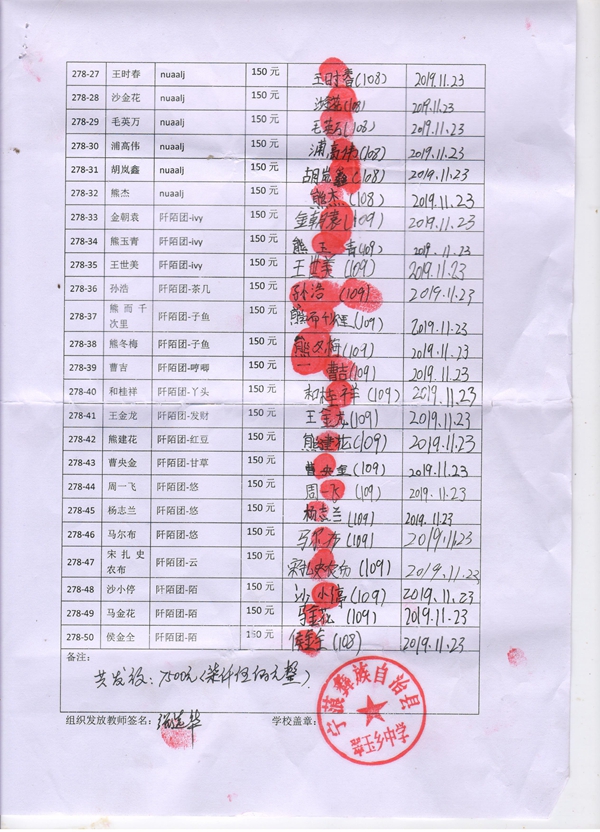 278-27 王时春 nuaalj 150 元 王时春(108) 2019.11.23
278-28 沙金花 nuaalj 150 元 沙金花(108) 2019.11.23
278-29 毛英万 nuaalj 150 元 毛英万(108) 2019.11.23
278-30 浦高伟 nuaalj 150 元 浦高伟(108) 2019.11.23
278-31 胡岚鑫 nuaalj 150 元 胡岚鑫(108) 2019.11.23
278-32 熊杰 nuaalj 150 元 熊杰(108) 2019.11.23
278-33 金朝袁 阡陌团-ivy 150 元 金朝袁(109) 2019.11.23
278-34 熊玉青 阡陌团-ivy 150 元 熊玉青(109) 2019.11.23
278-35 王世美 阡陌团-ivy 150 元 王世美(109) 2019.11.23
278-36 孙浩 阡陌团-茶几 150 元 孙浩(109) 2019.11.23
278-37 熊而千次里 阡陌团-子鱼 150 元 熊而千次里(109) 2019.11.23
278-38 熊冬梅 阡陌团-子鱼 150 元 熊冬梅(109) 2019.11.23
278-39 曹吉 阡陌团-哼唧 150 元 曹吉(109) 2019.11.23
278-40 和桂祥 阡陌团-丫头 150 元 和桂祥(109) 2019.11.23
278-41 王金龙 阡陌团-发财 150 元 王金龙(109) 2019.11.23
278-42 熊建花 阡陌团-红豆 150 元 熊建花(109) 2019.11.23
278-43 曹央金 阡陌团-甘草 150 元 曹央金(109) 2019.11.23
278-44 周一飞 阡陌团-悠 150 元 周一飞(109) 2019.11.23
278-45 杨志兰 阡陌团-悠 150 元 杨志兰(109) 2019.11.23
278-46 马尔布 阡陌团-悠 150 元 马尔布(109) 2019.11.23
278-47 宋扎史农布 阡陌团-云 150 元 宋扎史农布(109) 2019.11.23
278-48 沙小停 阡陌团-陌 150 元 沙小停(109) 2019.11.23
278-49 马金花 阡陌团-陌 150 元 马金花(109) 2019.11.23
278-50 侯金全 阡陌团-陌 150 元 侯金全(108) 2019.11.23
备注：
共发放：7500元(柒仟伍佰元整)
组织发放教师签名： 学校盖章：
宁蒗彝族自治县